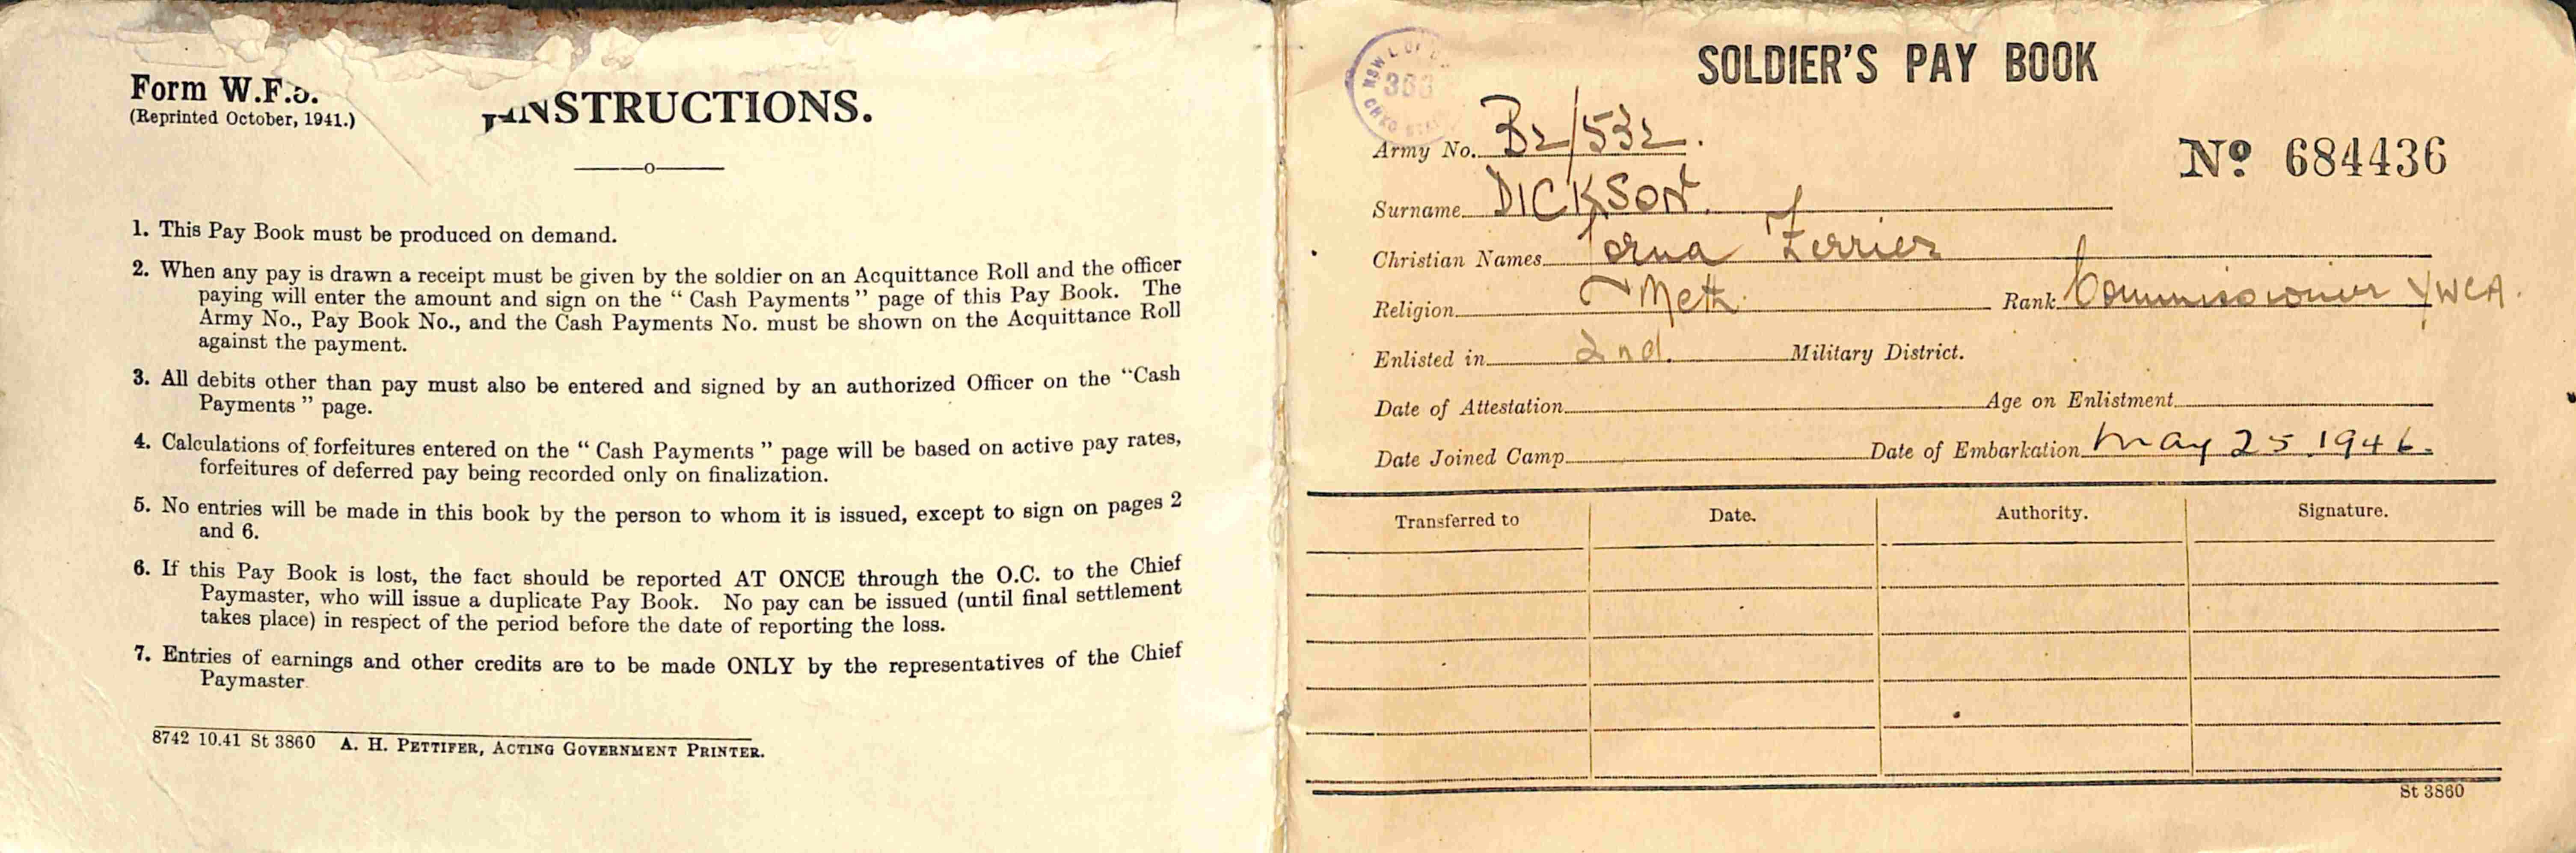 Form W.F.5.
(Reprinted October, 1941.)
INSTRUCTIONS.
1. This Pay Book must be produced on demand.
2. When any pay is drawn a receipt must be given by the soldier on an Acquittance Roll and the officer
paying will enter the amount and sign on the “ Cash Payments ” page of this Pay Book. The
Army No., Pay Book No., and the Cash Payments No. must be shown on the Acquittance Roll
against the payment.
3. All debits other than pay must also be entered and signed by an authorized Officer on the “Cash
Payments ” page.
4. Calculations of forfeitures entered on the “ Cash Payments ” page will be based on active pay rates,
forfeitures of deferred pay being recorded only on finalization.
5. No entries will be made in this book by the person to whom it is issued, except to sign on pages 2
and 6.
6. If this Pay Book is lost, the fact should be reported AT ONCE through the O.C. to the Chief
Paymaster, who will issue a duplicate Pay Book. No pay can be issued (until final settlement
takes place) in respect of the period before the date of reporting the loss.
7. Entries of earnings and other credits are to be made ONLY by the representatives of the Chief
Paymaster
8742 10.41 St 3860 A. H. PETTIFER, ACTING GOVERNMENT PRINTER.
SOLDIER'S PAY BOOK
NSW L OF C
Army No. B2/532.
No 684436
Surname DICKSON.
Christian Names Lorna Ferrier
Religion Meth. Rank Commissioner YWCA.
Enlisted in 2nd. Military District.
Date of Attestation Age on Enlistment
Date Joined Camp Date of Embarkation May 25.1946.
Transferred to Date. Authority. Signature.
St 3860